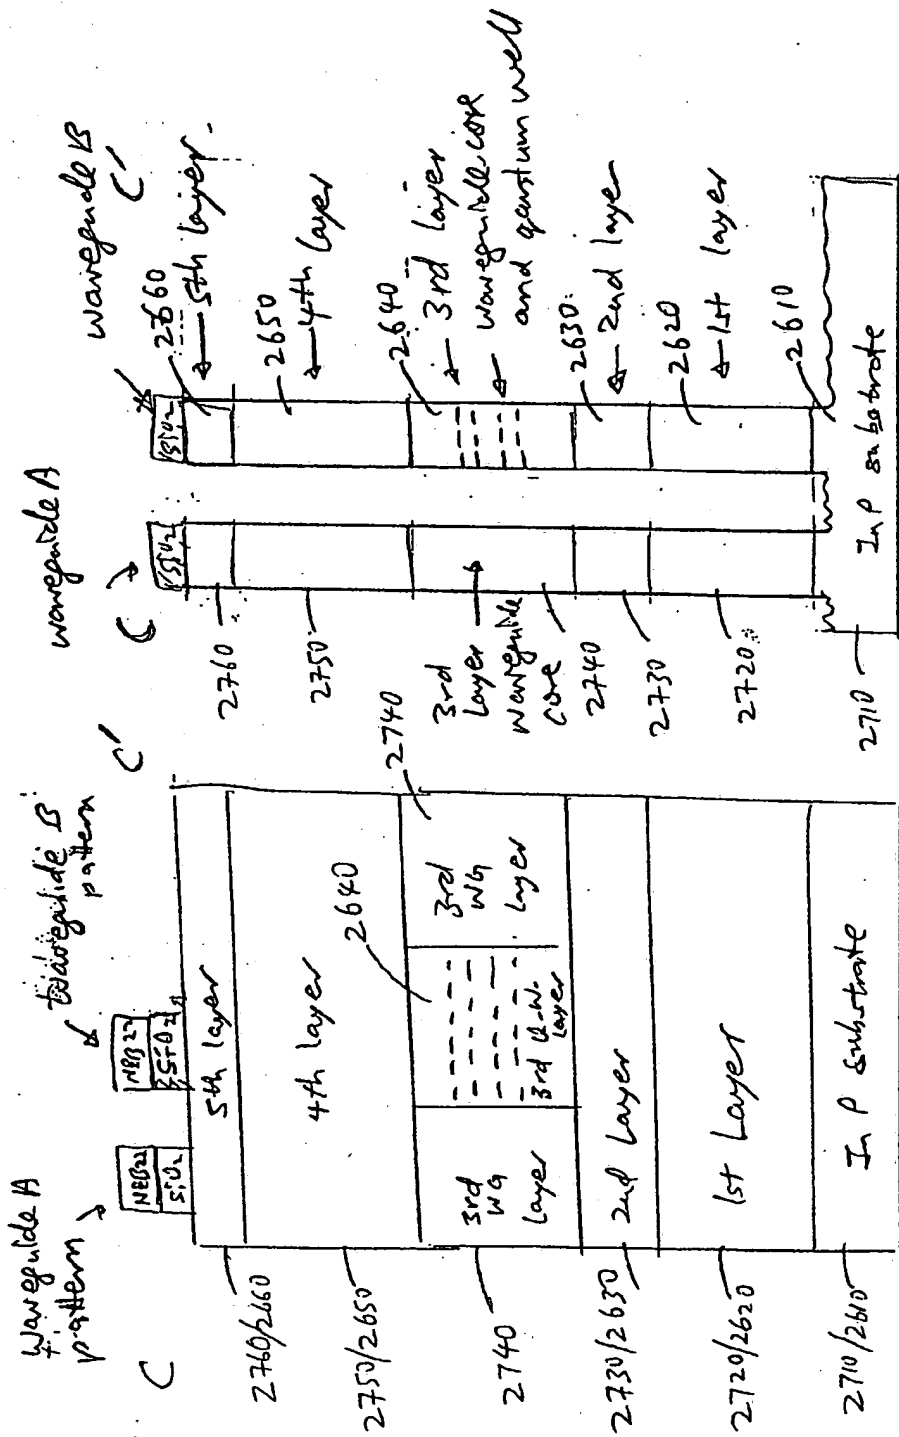 Waveguide A
pattern
Waveguide B
pattern
C
C'
NEB22
SiO2
NEB22
SiO2
5th layer
4th layer
2640
2740
3rd
WG
layer
3rd Q.W.
layer
3rd
WG
layer
2nd Layer
1st Layer
In P substrate
2760/2660
2750/2650
2740
2730/2630
2720/2620
2710/2610
waveguide A
C
waveguide B
C'
SiO2
SiO2
2660
5th layer
2650
4th layer
2640
3rd layer
waveguide core
and qantum well
2630
2nd layer
2620
1st layer
2610
In P substrate
2760
2750
3rd
Layer
waveguide
core
2740
2730
2720
2710